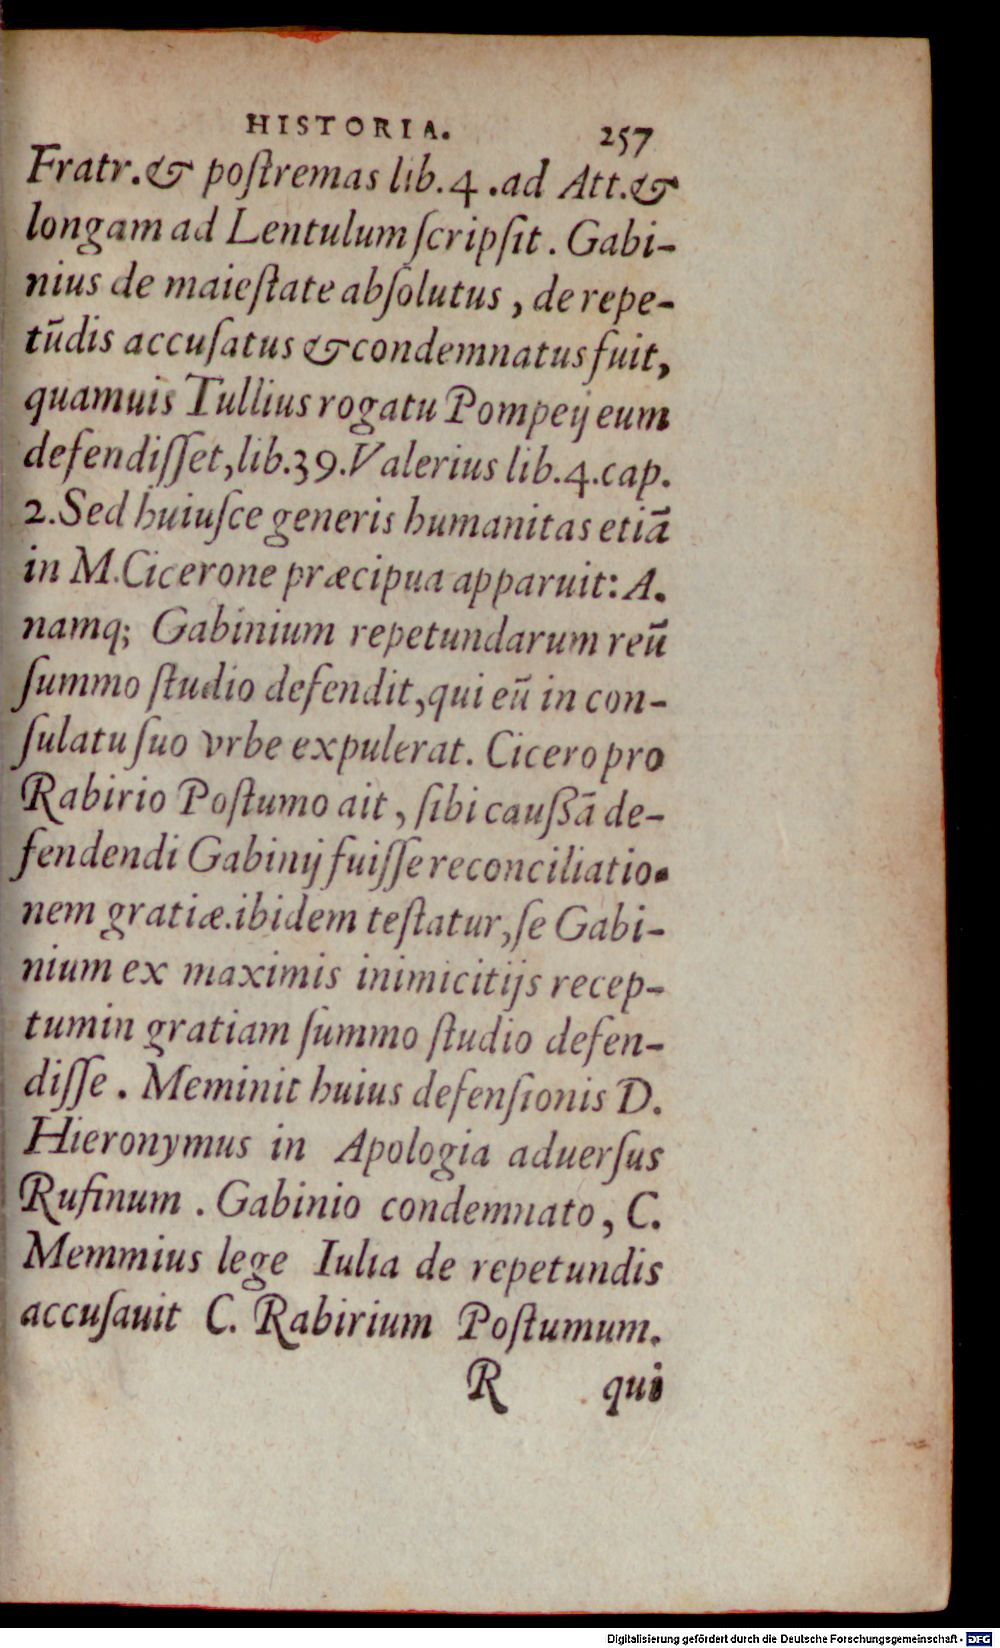 HISTORIA. 257
Fratr.& poſtremas lib.4.ad Att.&
longam ad Lentulum ſcripſit. Gabi-
nius de maieſtate abſolutus, de repe-
tūdis accuſatus & condemnatus fuit,
quamuis Tullius rogatu Pompeij eum
defendiſſet, lib.39.Valerius lib.4.cap.
2.Sed huiuſce generis humanitas etiā
in M.Cicerone præcipua apparuit: A.
namq; Gabinium repetundarum reū
ſummo ſtudio defendit, qui eū in con-
ſulatu ſuo vrbe expulerat. Cicero pro
Rabirio Poſtumo ait, ſibi caußā de-
fendendi Gabinij fuiſſe reconciliatio-
nem gratiæ.ibidem teſtatur, ſe Gabi-
nium ex maximis inimicitijs recep-
tumin gratiam ſummo ſtudio defen-
diſſe. Meminit huius defenſionis D.
Hieronymus in Apologia aduerſus
Rufinum. Gabinio condemnato, C.
Memmius lege Iulia de repetundis
accuſauit C. Rabirium Poſtumum.
R qui
Digitalisierung gefördert durch die Deutsche Forschungsgemeinschaft - DFG